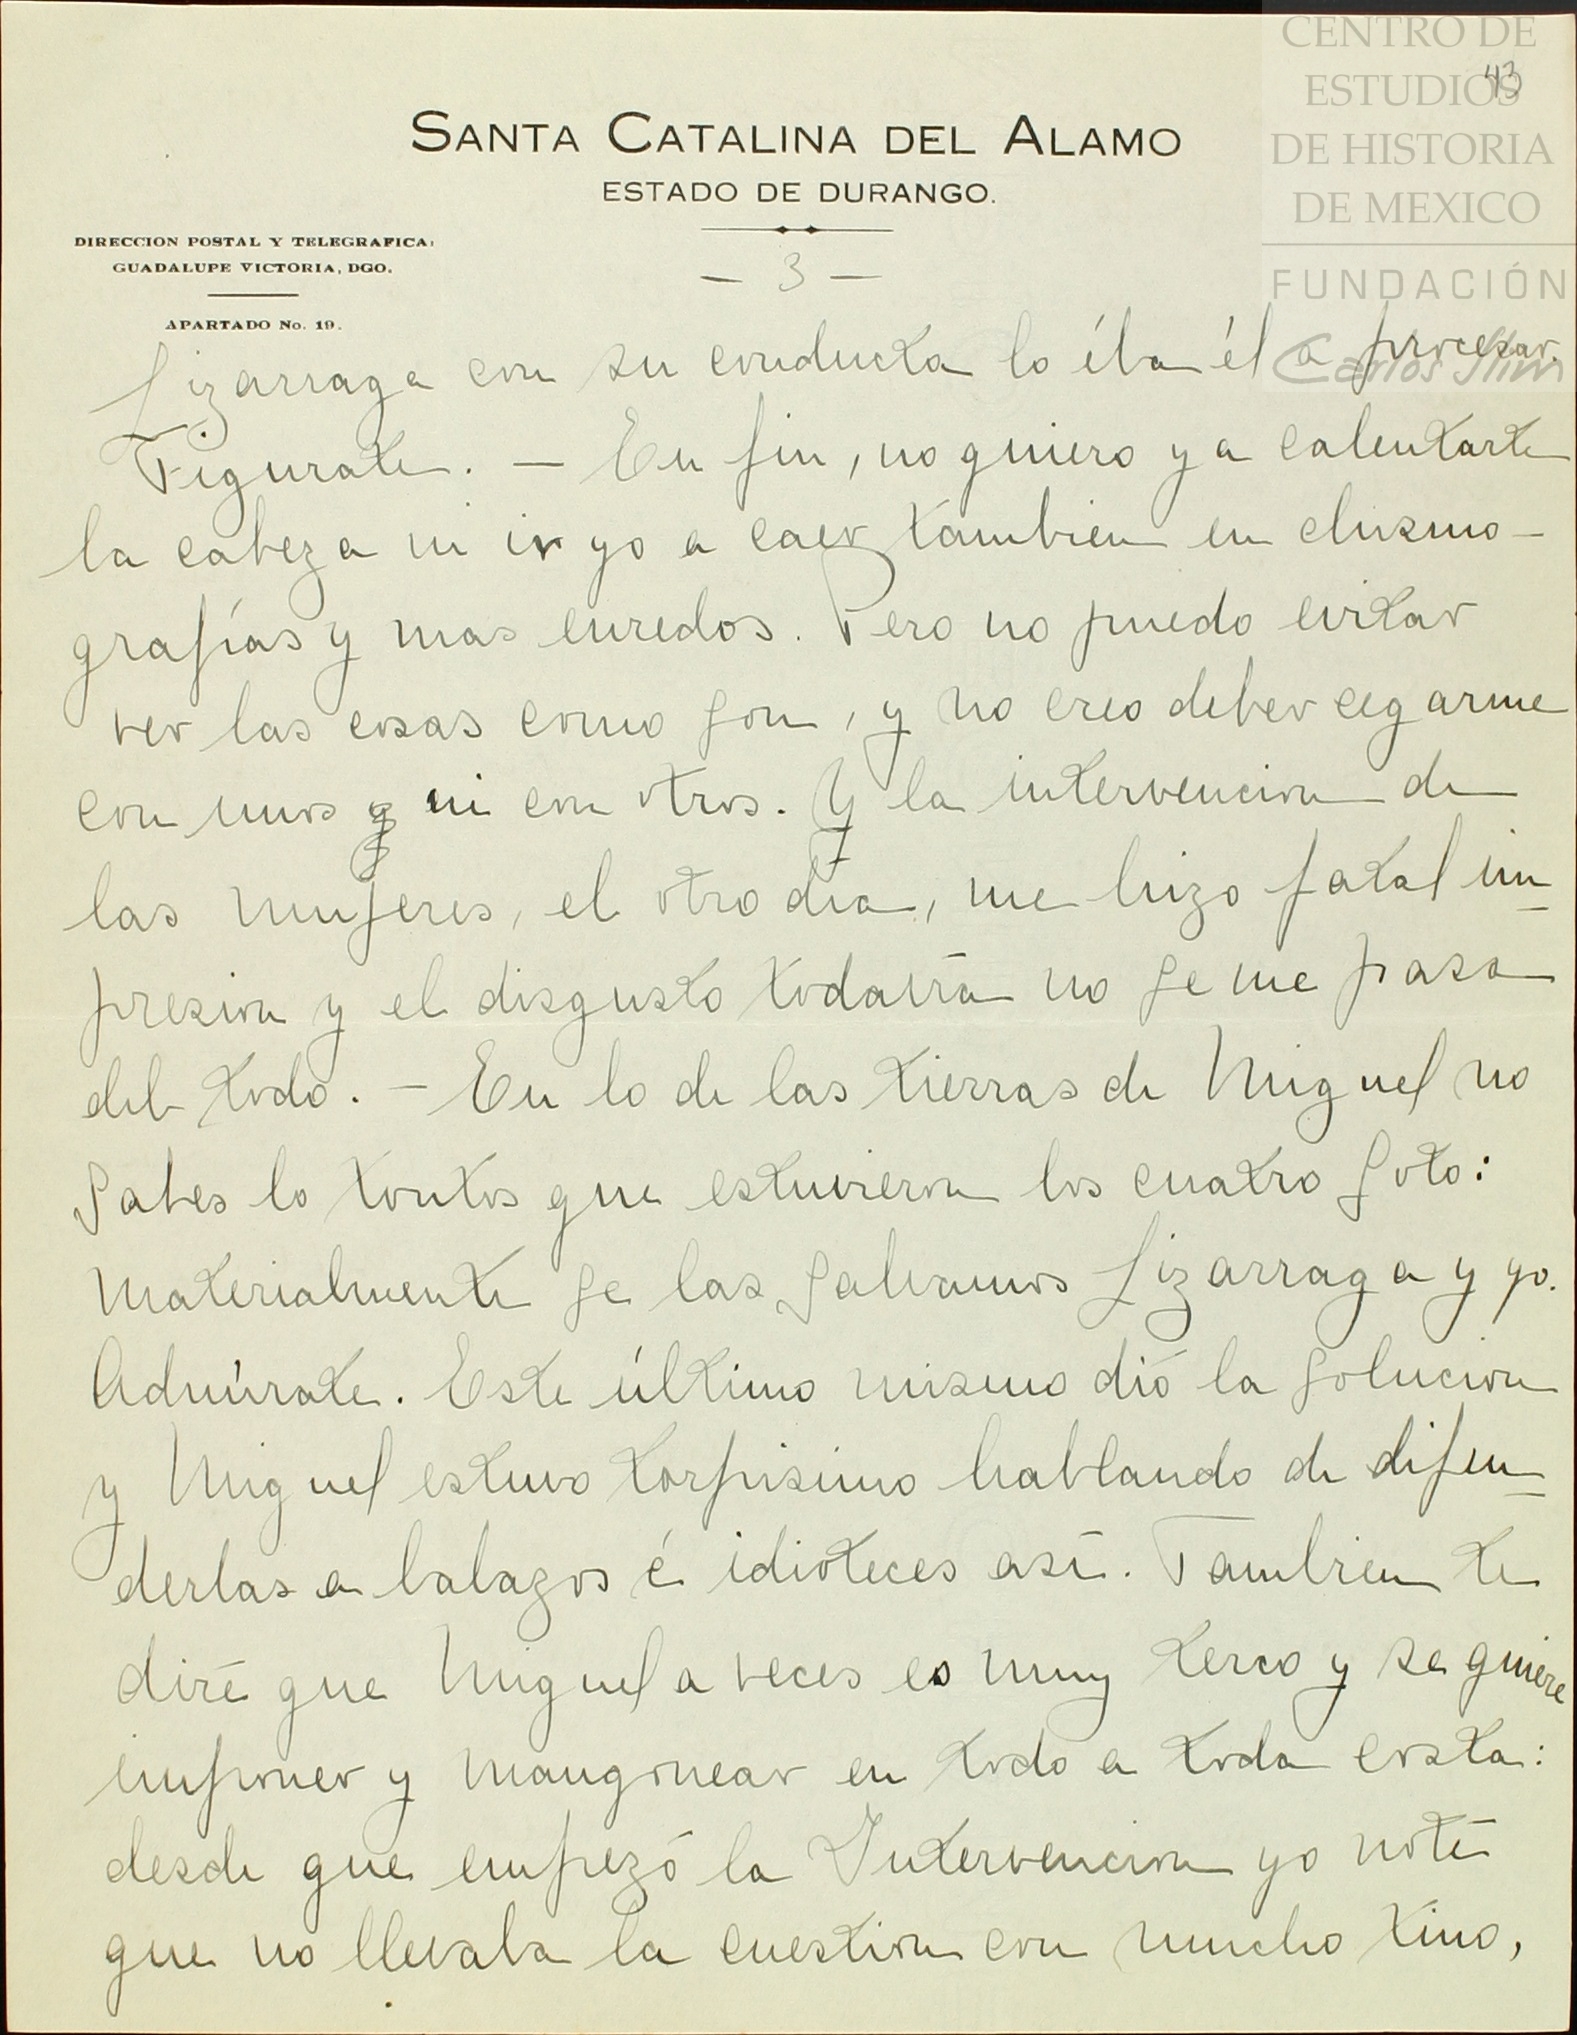 CENTRO DE
ESTUDIOS
DE HISTORIA
DE MEXICO
FUNDACIÓN
Carlos Slim
43
SANTA CATALINA DEL ALAMO
ESTADO DE DURANGO.
DIRECCION POSTAL Y TELEGRAFICA:
GUADALUPE VICTORIA, DGO.
APARTADO No. 19.
- 3 -
Lizarraga con su conducta lo iba él a procesar.
Figurate. - En fin, no quiero ya calentarte
la cabeza ni ir yo a caer tambien en chismo-
grafías y mas enredos. Pero no puedo evitar
ver las cosas como son, y no creo deber cegarme
con unos y ni con otros. Y la intervencion de
las mujeres, el otro día, me hizo fatal im-
presion y el disgusto todavía no se me pasa
del todo. - En lo de las tierras de Miguel no
sabes lo tontos que estuvieron los cuatro Soto:
materialmente se las salvamos Lizarraga y yo.
Admírate. Este último mismo dió la solucion
y Miguel estuvo torpisimo hablando de difen-
derlas a balazos é idioteces así. Tambien te
diré que Miguel a veces es muy terco y se quiere
imponer y mangonear en todo a toda costa:
desde que empezó la Intervencion yo noté
que no llevaba la cuestion con mucho tino,